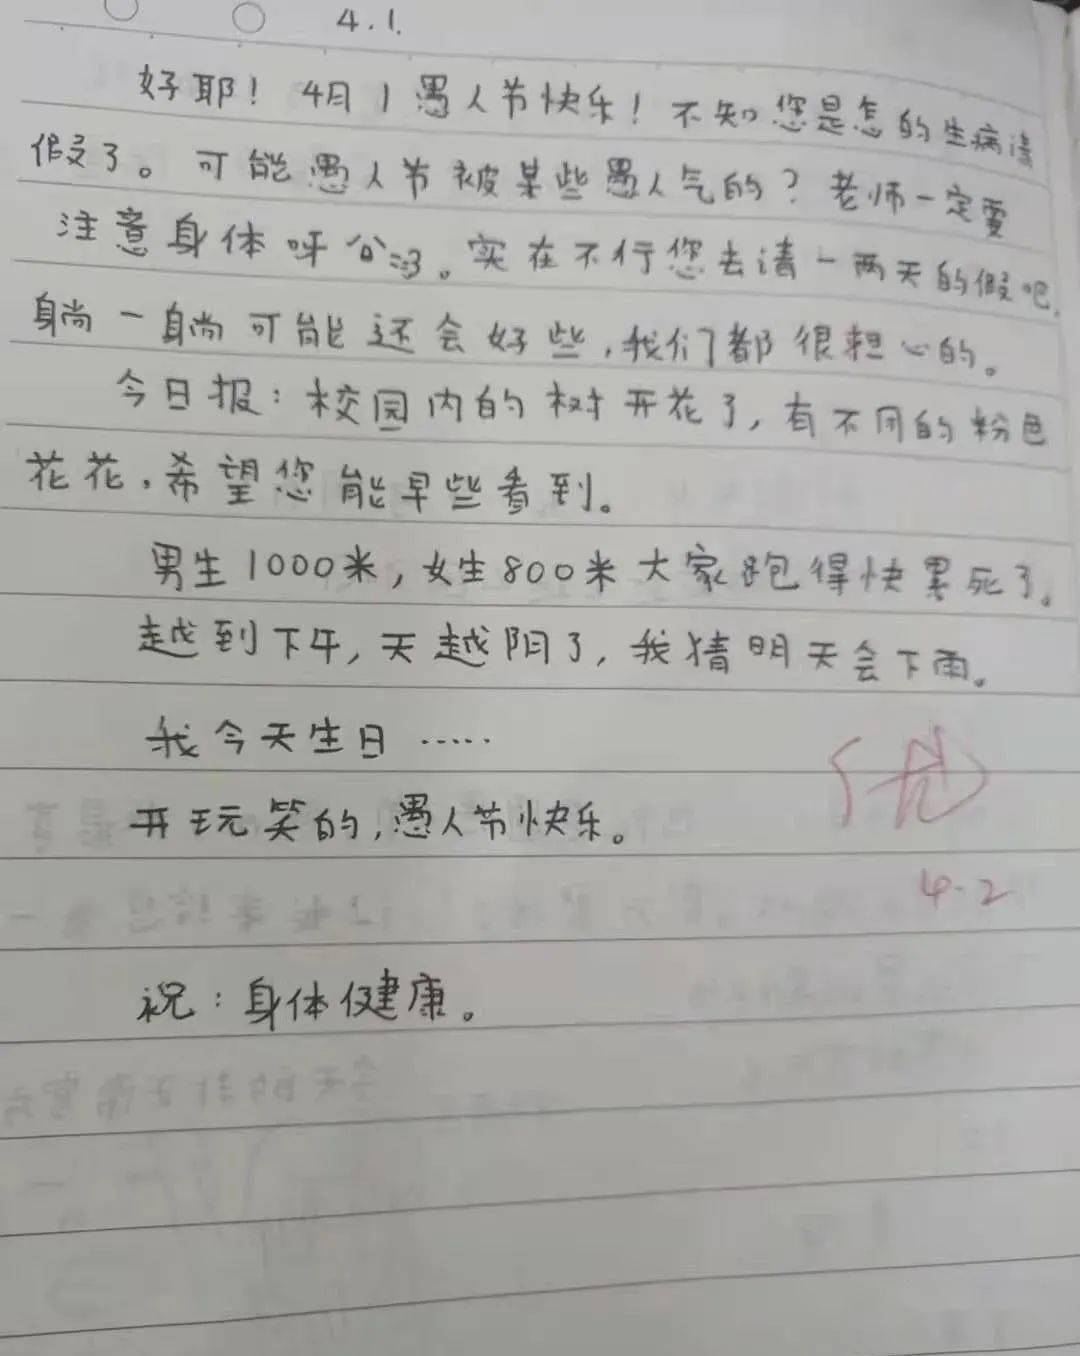 4.1.
好耶！4月1愚人节快乐！不知您是怎的生病请
假了。可能愚人节被某些愚人气的？老师一定要
注意身体呀。实在不行您去请一两天的假吧,
躺一躺可能还会好些,我们都很担心的。
今日报：校园内的树开花了,有不同的粉色
花花,希望您能早些看到。
男生1000米,女生800米大家跑得快累死了。
越到下午,天越阴了,我猜明天会下雨。
我今天生日……
开玩笑的,愚人节快乐。
优
4.2
祝：身体健康。